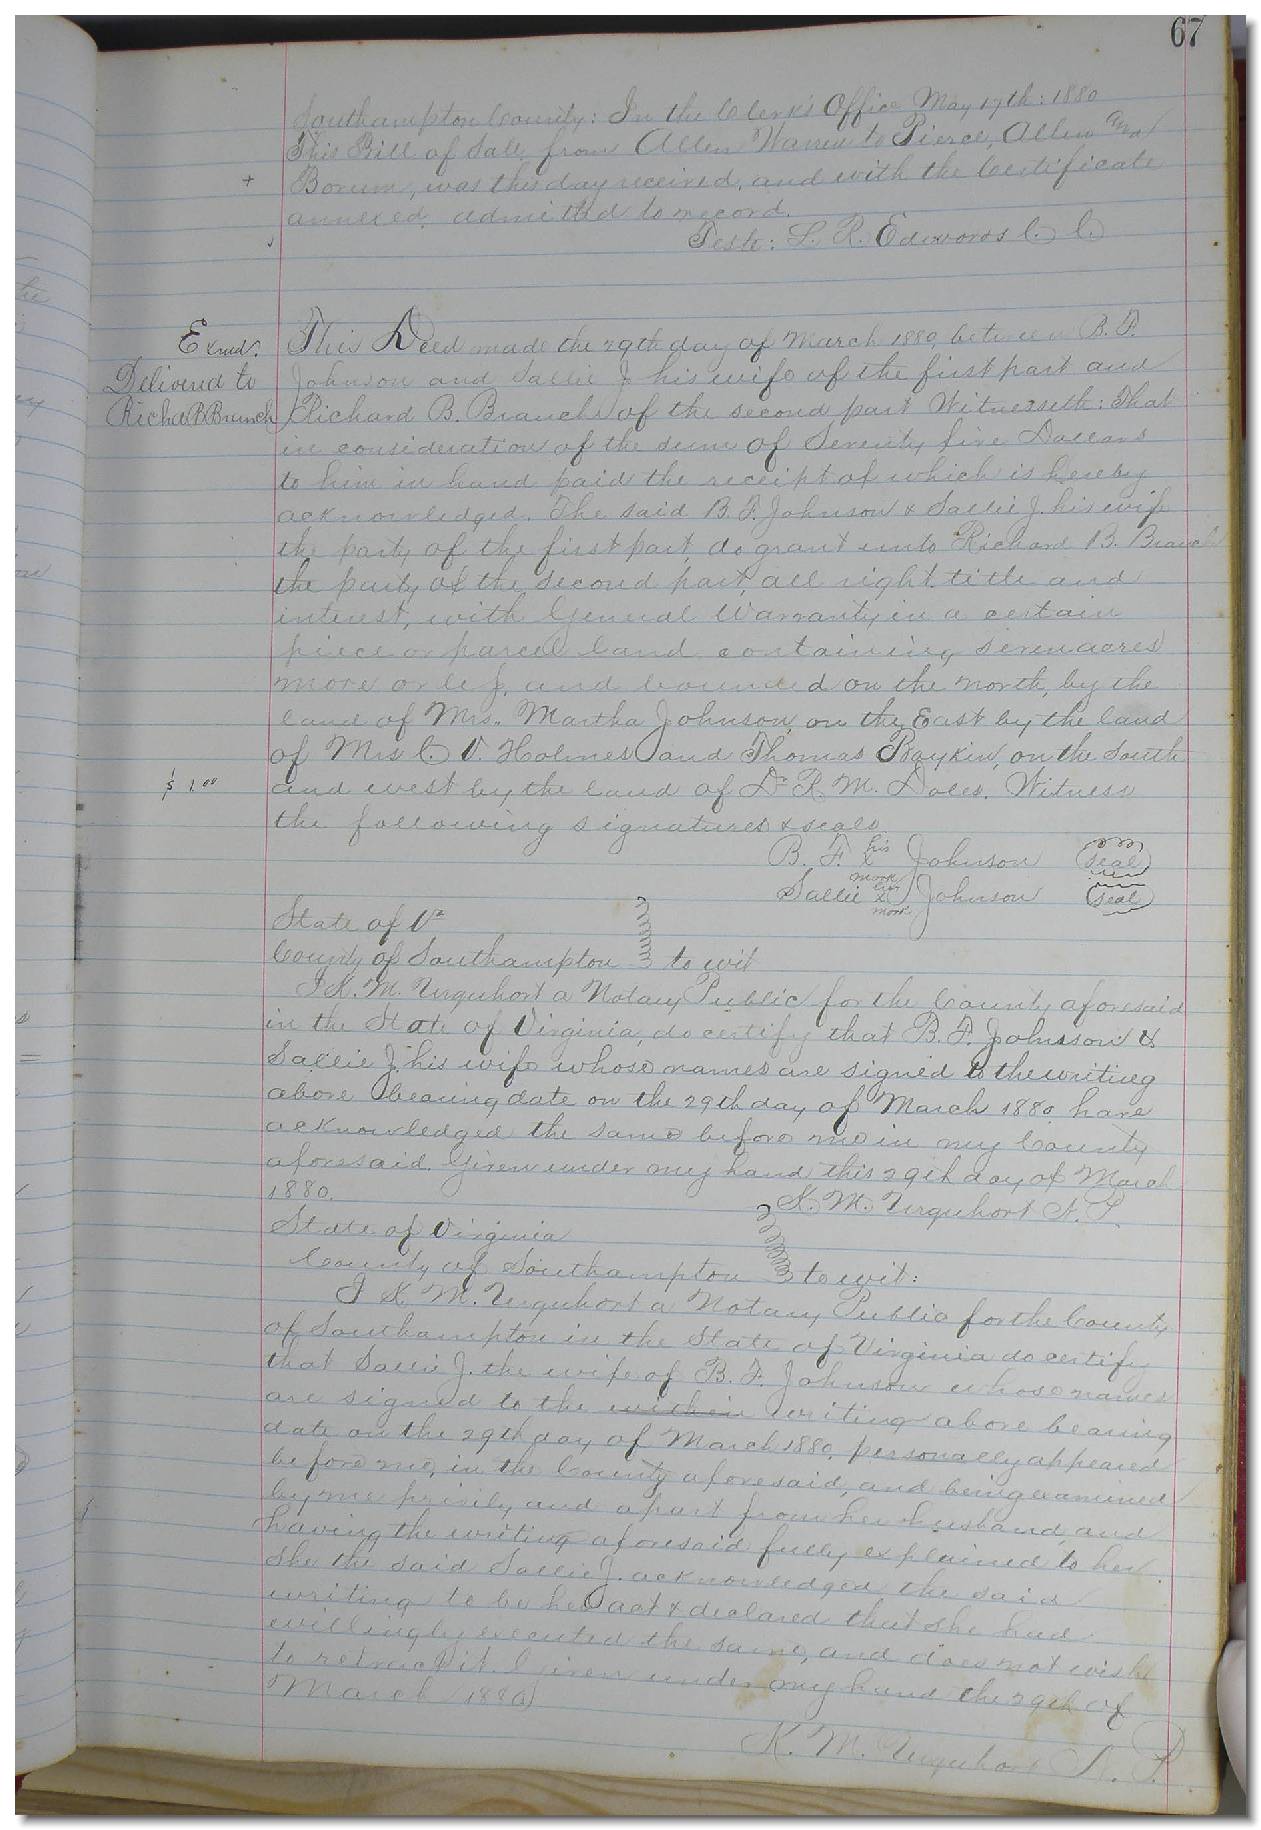 67
Southampton County: In the Clerk's Office May 17th: 1880
This Bill of Sale from Allen Warren to Pierce, Allen and
+ Borum, was this day received, and with the Certificate
annexed, admitted to record.
Teste: L. R. Edwards C. C.
Exmd. This Deed made the 29th day of March 1880, between B. F.
Delivered to Johnson and Sallie J. his wife of the first part and
Richd B Branch Richard B. Branch of the second part Witnesseth: That
in consideration of the sum of Seventy five Dollars
to him in hand paid the receipt of which is hereby
acknowledged. The said B. F. Johnson & Sallie J. his wife
the party of the first part, do grant unto Richard B. Branch
the party of the second part, all right title and
interest, with General Warranty, in a certain
piece or parcel land containing seven acres
more or less, and bounded on the north, by the
land of Mrs. Martha Johnson, on the East by the land
of Mrs C. V. Holmes and Thomas Baykin, on the South
$ 1.00 and west by the land of Dr R. M. Doles. Witness
the following signatures & seals
B. F. his x mark Johnson (Seal)
Sallie her x mark J Johnson (Seal)
State of Va
County of Southampton to wit
I K. M. Urquhart a Notary Public for the County aforesaid
in the State of Virginia, do certify that B. F. Johnson &
Sallie J. his wife whose names are signed to the writing
above bearing date on the 29th day of March 1880, have
acknowledged the same before me in my County
aforesaid. Given under my hand this 29th day of March
1880. K. M. Urquhart N. P.
State of Virginia
County of Southampton to wit:
I K. M. Urquhart a Notary Public for the County
of Southampton in the State of Virginia do certify
that Sallie J. the wife of B. F. Johnson whose names
are signed to the within writing above bearing
date on the 29th day of March 1880, personally appeared
before me, in the County aforesaid, and being examined
by me privily and apart from her husband, and
having the writing aforesaid fully explained to her
She the said Sallie J. acknowledged the said
writing to be her act & declared that she had
willingly executed the same, and does not wish
to retract it. Given under my hand the 29th of
March 1880
K. M. Urquhart N. P.